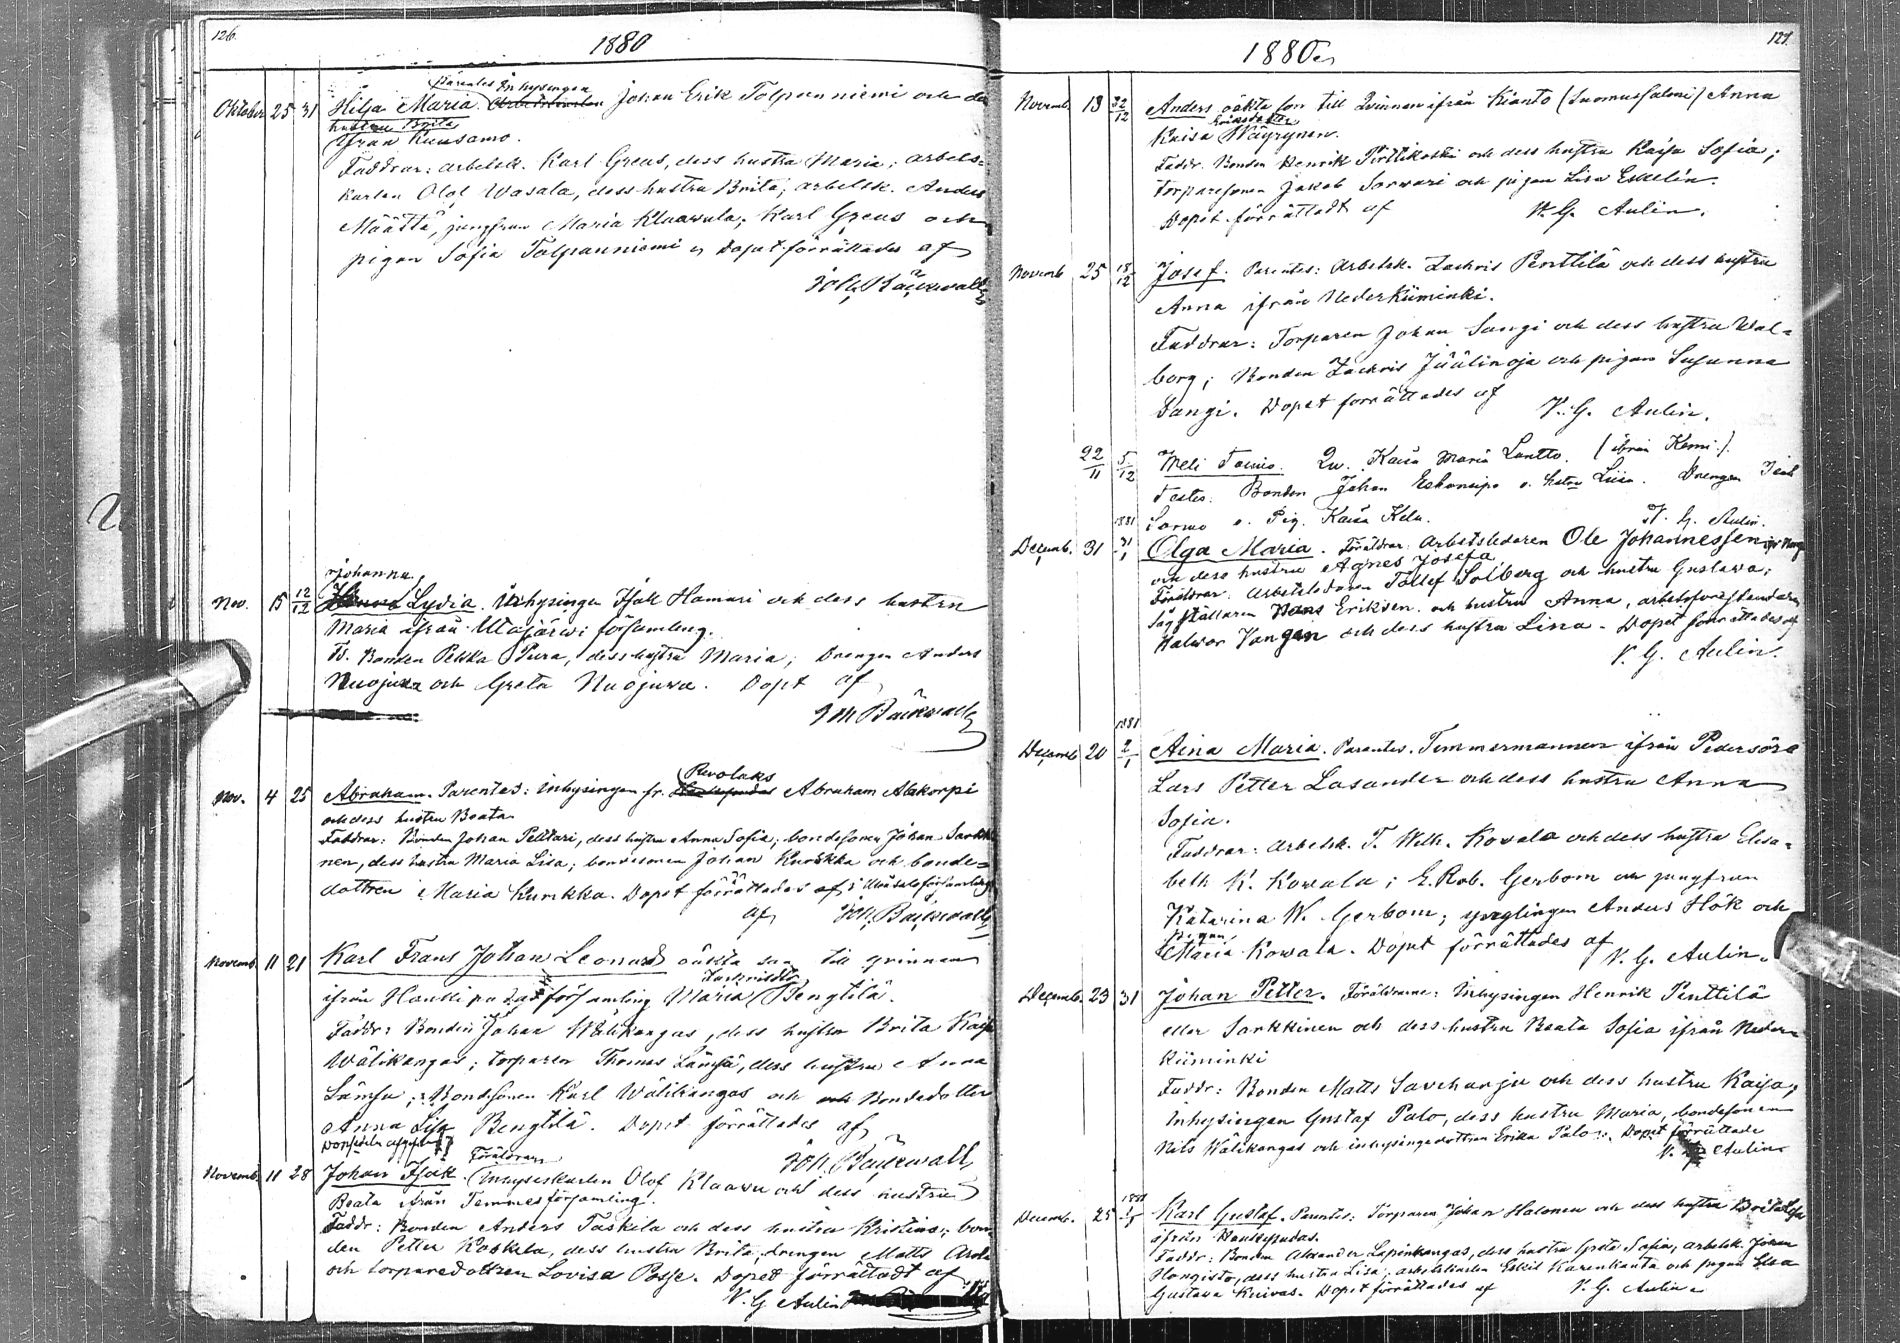 126.
1880
Oktober 25 31 Hilja Maria. Parentes Inhysingen Johan Erik Tolpanniemi och des
hustru Brita
ifrån Kuusamo.
Faddrar: arbetsk. Karl Greus, dess hustru Maria; arbets-
karlen Olof Wasala, dess hustru Brita; arbetsk. Anders
Määttä, jungfrun Maria Klaavula; Karl Greus och
pigan Sofia Tolpanniemi Dopet förrättades af
Joh. Bäckwall
Nov. 15 12/12 Johanna Lydia. Inhysingen Isak Hamari och dess hustru
Maria ifrån Utajärvi församling.
F. Bonden Pekka Pura, dess hustru Maria; Drengen Anders
Nuojuva och Greta Nuojuwa. Dopt af
Joh Bäckwall
Nov. 4 25 Abraham. Parentes: inhysingen fr. Revolaks Abraham Alakorpi
och dess hustru Beata
Faddrar: Bonden Johan Pelttari, dess hustru Anna Sofia; bondesonen Johan Sarkki-
nen, dess hustru Maria Lisa; bondesonen Johan Kurikka och bonde-
dottren Maria Kurikka. Dopet förrättades af
af Joh. Bäckwall
Novemb. 11 21 Karl Frans Johan Leonard oäkta son till qvinnan
ifrån Haukipudas församling Maria Zackrisdtr Bengtilä.
Faddr: Bonden Johan Wälikangas, dess hustru Brita Kaisa
Wälikangas; torparen Thomas Lämsä, dess hustru Anna
Lämsä; Bondsonen Karl Wälikangas och Bondedotter
Anna Lisa Bengtilä. Dopet förrättades af
Joh. Bäckwall
Novemb. 11 28 Johan Isak. Föräldrar Inhyseskarlen Olof Klaavu och dess hustru
Beata ifrån Temmes församling.
Faddr: Bonden Anders Taskila och dess hustru Kristina; bon-
den Petter Koskela, dess hustru Brita, drengen Matts Arola
och torparedottren Lovisa Posse. Dopet förrättadt af
V. G Aulin
127.
1880
Novemb. 13 Anders oäkta son till Qvinnan ifrån Kianto (Suomussalmi) Anna
Kaisa Eriksdotter Väyrynen.
Faddr. Bonden Henrik Pirttikoski och dess hustru Kaisa Sofia;
torparesonen Jakob Sarwari och pigan Lisa Eskelin.
Dopet förrättadt af V. G. Aulin.
Novemb 25 18/12 Josef. Parentes: Arbetsk. Zachris Penttilä och dess hustru
Anna ifrån Nederkiiminki.
Faddrar: Torparen Johan Sangi och dess hustru Wal-
borg; Bonden Zachris Jäälinoja och pigan Susanna
Sangi. Dopet förrättades af V. G. Aulin.
22/11 5/12 Meli Q. Kaisa Maria Lantto. (ifrån Kemi.)
Testes. Bonden Johan o. hstru Liisa. Drengen
o. Pig. Kaisa V. G. Aulin.
1881
Decemb. 31 31/1 Olga Maria. Föräldrar: Arbetsledaren Ole Johannessen
och dess hustru Agnes Josefa
Föräldrar. Arbetsledaren Tollef Solberg och hustru Gustava;
Sågställaren Hans Eriksen och hustru Anna, arbetsförestandaren
Halwor Vangen och dess hustru Lina. Dopet förrättades af
V. G. Aulin.
1881
Decemb 20 2/1 Aina Maria. Parentes. Timmermannen ifrån Pedersöre
Lars Petter Lasander och dess hustru Anna
Sofia.
Faddrar: Arbetsk. T. Wilh. Kowala och dess hustru Elisa-
beth K. Kowala; E. Rob. Gerbom och jungfrun
Katarina W. Gerbom; ynglingen Anders Hök och
Pigan
Maria Kowala. Dopet förrättades af V. G. Aulin.
Decemb. 23 31 Johan Petter. Föräldrarne: Inhysingen Henrik Penttilä
eller Sarkkinen och dess hustru Beata Sofia ifrån Neder-
kiiminki
Faddr: Bonden Matts Saveharju och dess hustru Kaisa;
Inhysingen Gustaf Palo, dess hustru Maria, bondesonen
Nils Wälikangas och inhysingedottren Erika Palo. Dopet förrättade
V. G. Aulin
Decemb. 25 Karl Gustaf. Parentes: Torparen Johan Halonen och dess hustru Brita Lisa
ifrån Haukipudas.
Faddr: Bonden Alexander Lapinkangas, dess hustru Greta Sofia; arbetsk. Johan
Hongisto, dess hustru Lisa; arbetskarlen Eskil Karenkanta och pigan Elsa
Gustava Kuivas. Dopet förrättades af V. G. Aulin